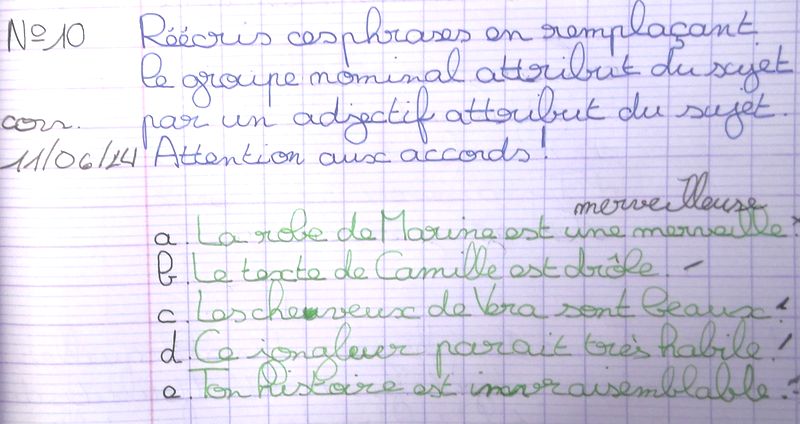 N°10 Réécris ces phrases en remplaçant
le groupe nominal attribut du sujet
corr. par un adjectif attribut du sujet.
11/06/14 Attention aux accords !
merveilleuse
a. La robe de Marine est une merveille.
b. Le texte de Camille est drôle.
c. Les cheveux de Vera sont beaux.
d. Ce jongleur parait très habile.
e. Ton histoire est invraisemblable.